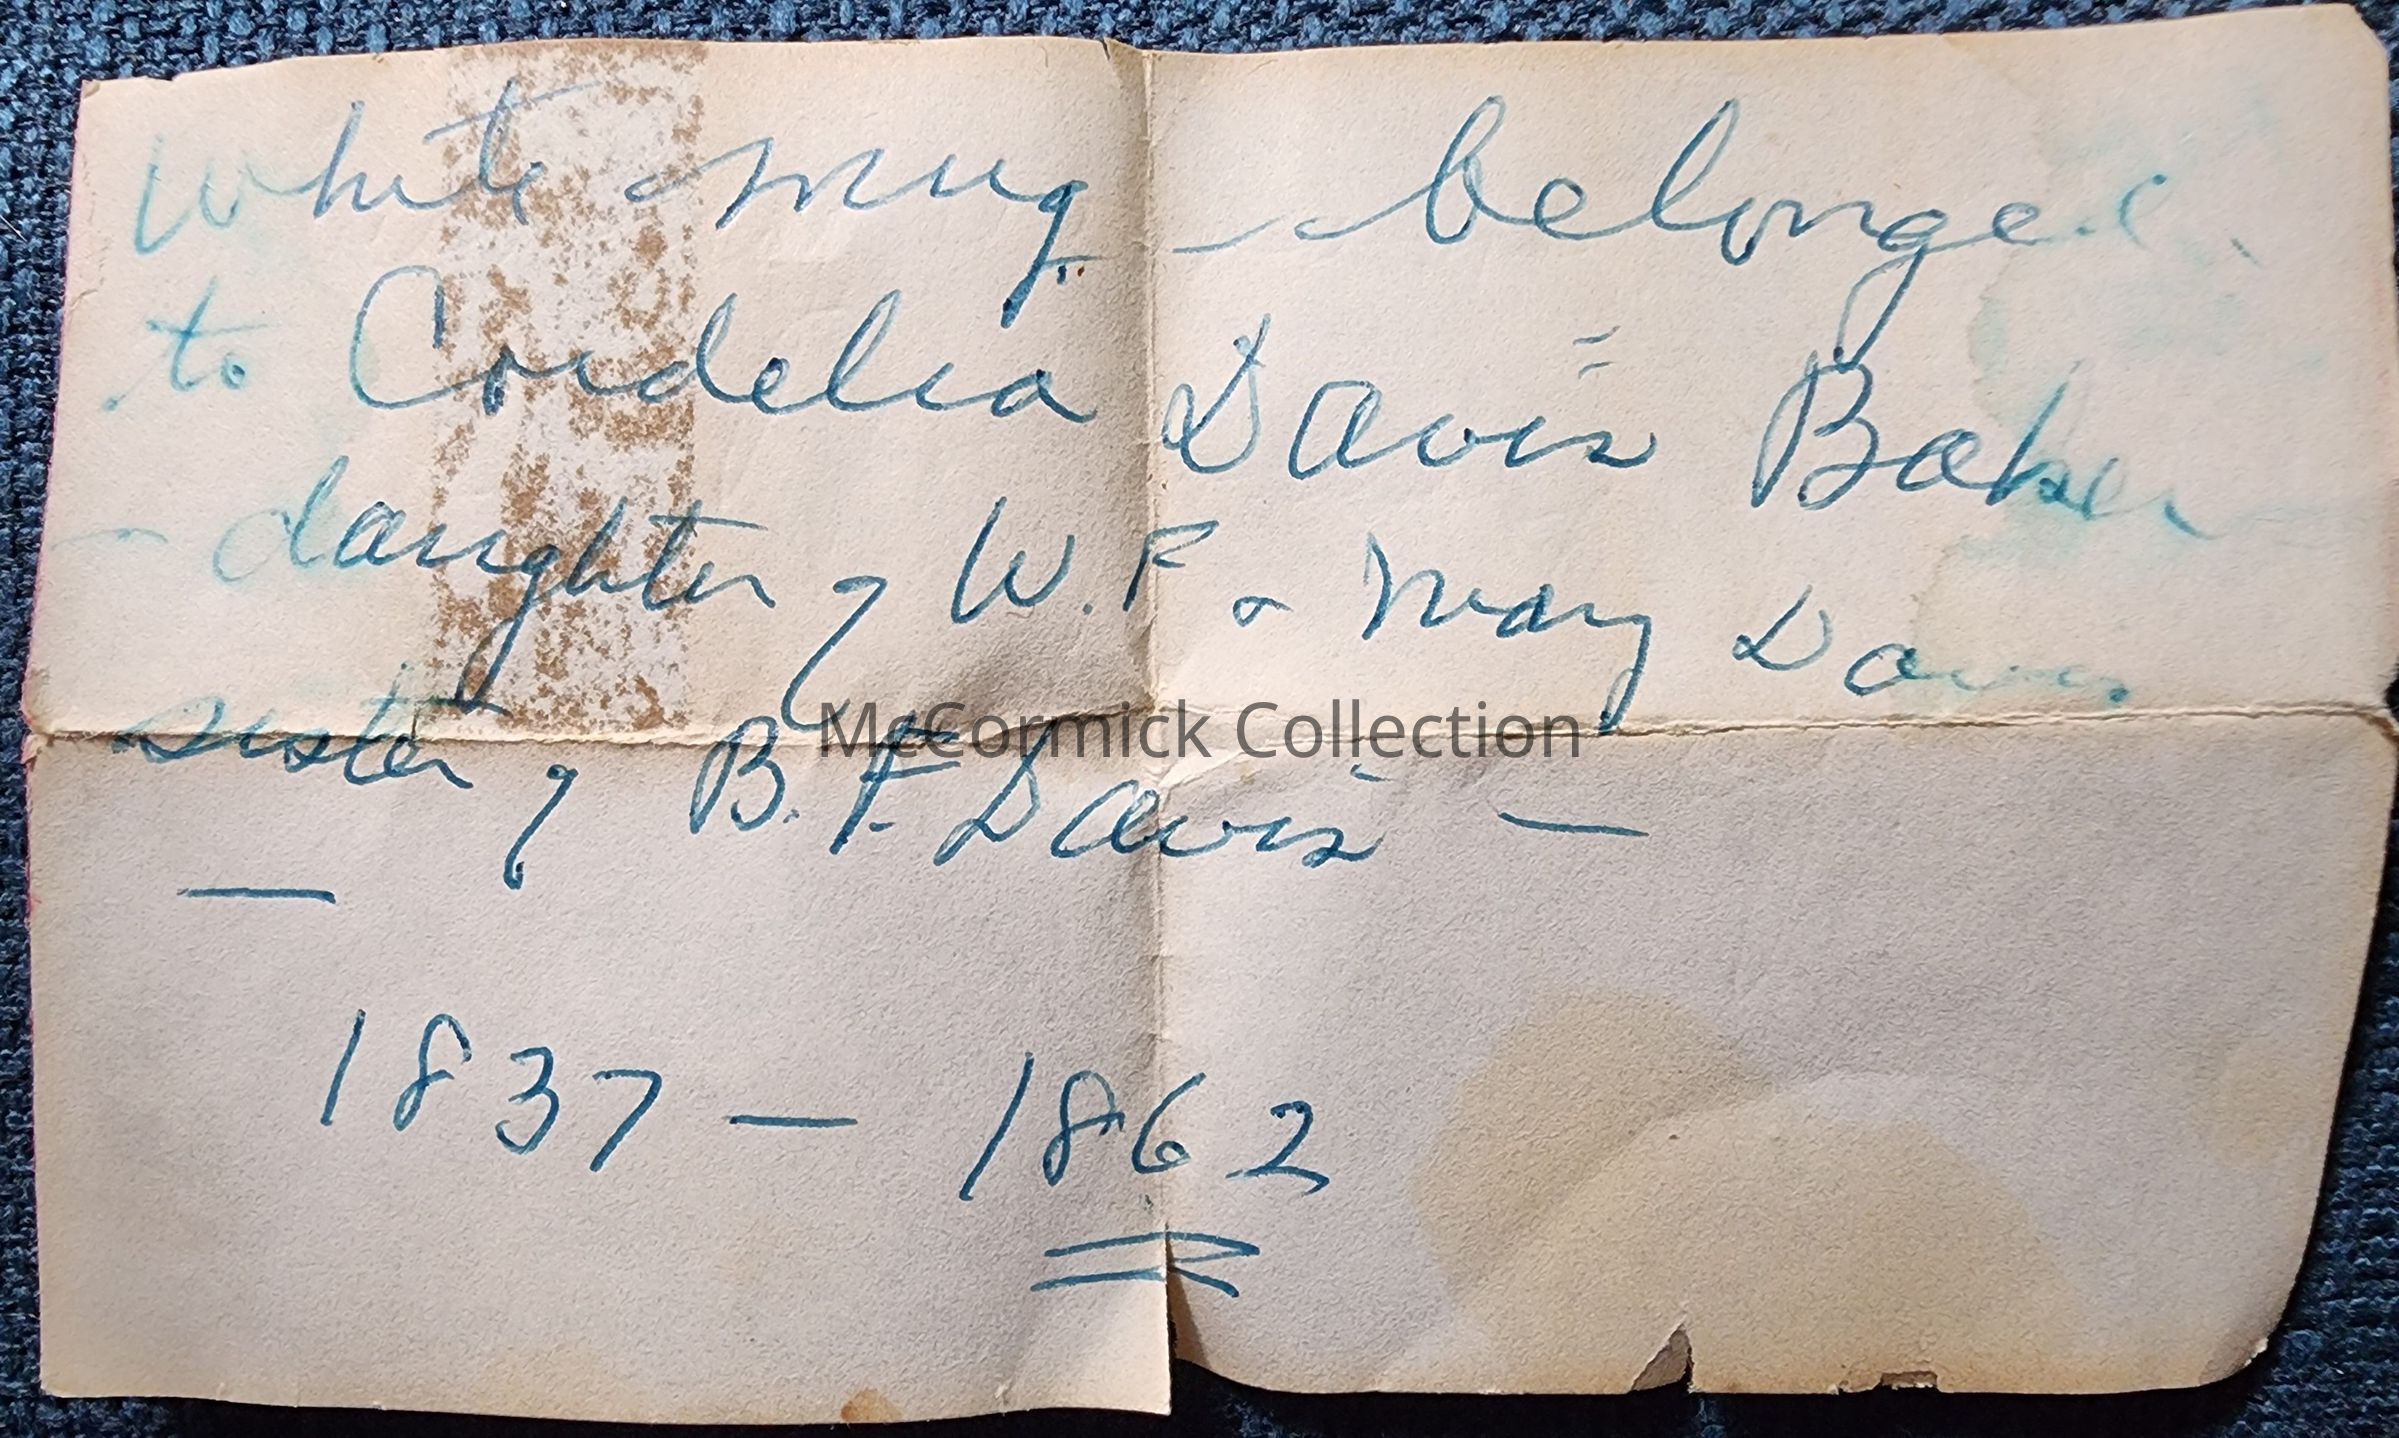 White mug - belonged
to Cordelia Davis Baker
- daughter of W. F & Mary Davis
sister of B. F. Davis -
-
1837 - 1862
McCormick Collection